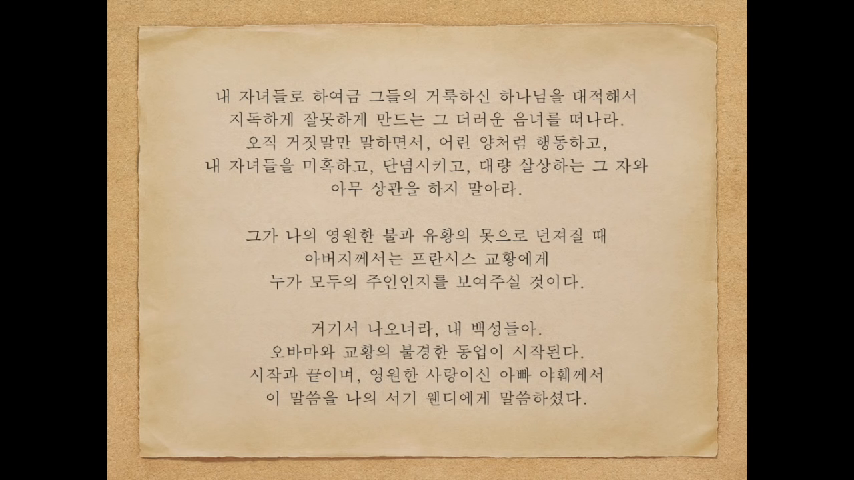 내 자녀들로 하여금 그들의 거룩하신 하나님을 대적해서
지독하게 잘못하게 만드는 그 더러운 음녀를 떠나라.
오직 거짓말만 말하면서, 어린 양처럼 행동하고,
내 자녀들을 미혹하고, 단념시키고, 대량 살상하는 그 자와
아무 상관을 하지 말아라.
그가 나의 영원한 불과 유황의 못으로 던져질 때
아버지께서는 프란시스 교황에게
누가 모두의 주인인지를 보여주실 것이다.
거기서 나오너라, 내 백성들아.
오바마와 교황의 불경한 동업이 시작된다.
시작과 끝이며, 영원한 사랑이신 아빠 야훼께서
이 말씀을 나의 서기 웬디에게 말씀하셨다.